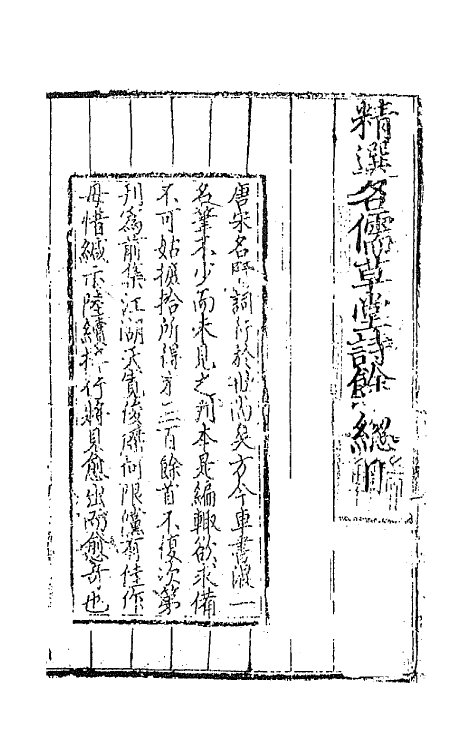 精選名儒草堂詩餘總目
唐宋名賢詞行於世尚矣方今車書混一
名筆不少而未見之刊本是編輒欲求備
不可姑摭拾所得才三百餘首不復次第
刊為前集江湖天寬俊傑何限儻有佳作
毋惜緘示陸續梓行將見愈出而愈奇也